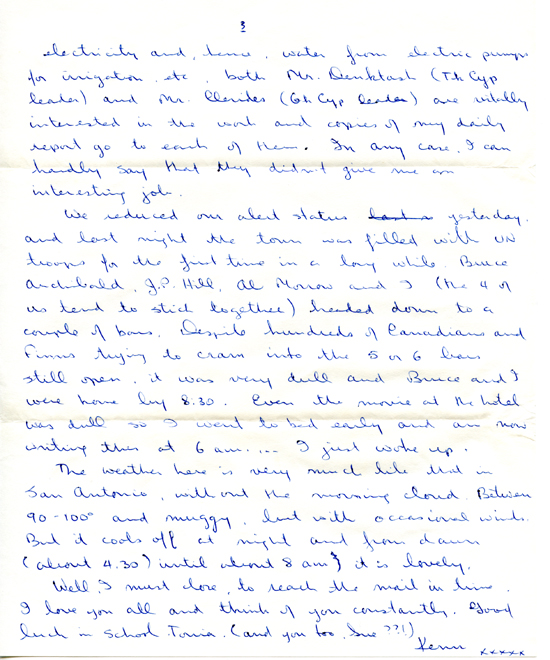 3
electricity and, hence, water from electric pumps
for irrigation, etc. both Mr. Denktash (Tk Cyp
leader) and Mr. Clerides (Gk Cyp leader) are vitally
interested in the work and copies of my daily
report go to each of them. In any case, I can
hardly say that they didn't give me an
interesting job.
We reduced our alert status yesterday,
and last night the town was filled with UN
troops for the first time in a long while. Bruce
Archibald, J.P. Hill, Al Morrow and I (the 4 of
us tend to stick together) headed down to a
couple of bars. Despite hundreds of Canadians and
Finns trying to cram into the 5 or 6 bars
still open, it was very dull and Bruce and I
were home by 8.30. Even the movie at the hotel
was dull so I went to bed early and am now
writing this at 6 am.... I just woke up.
The weather here is very much like that in
San Antonio, without the morning cloud. Between
90-100° and muggy, but with occasional winds.
But it cools off at night and from dawn
(about 4.30) until about 8 am, it is lovely.
Well, I must close, to reach the mail in time.
I love you all and think of you constantly. Good
luck in School Tonia. (and you too, Sue ??!)
Kenn xxxxx